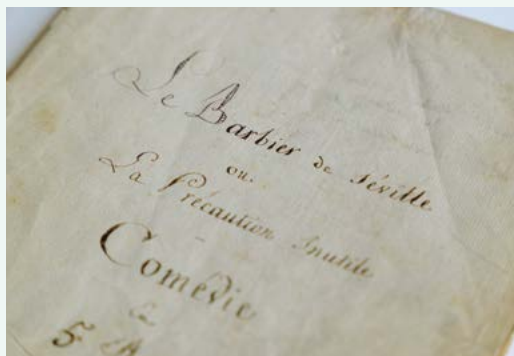 Le Barbier de Séville
ou
La Précaution Inutile
Comédie
5